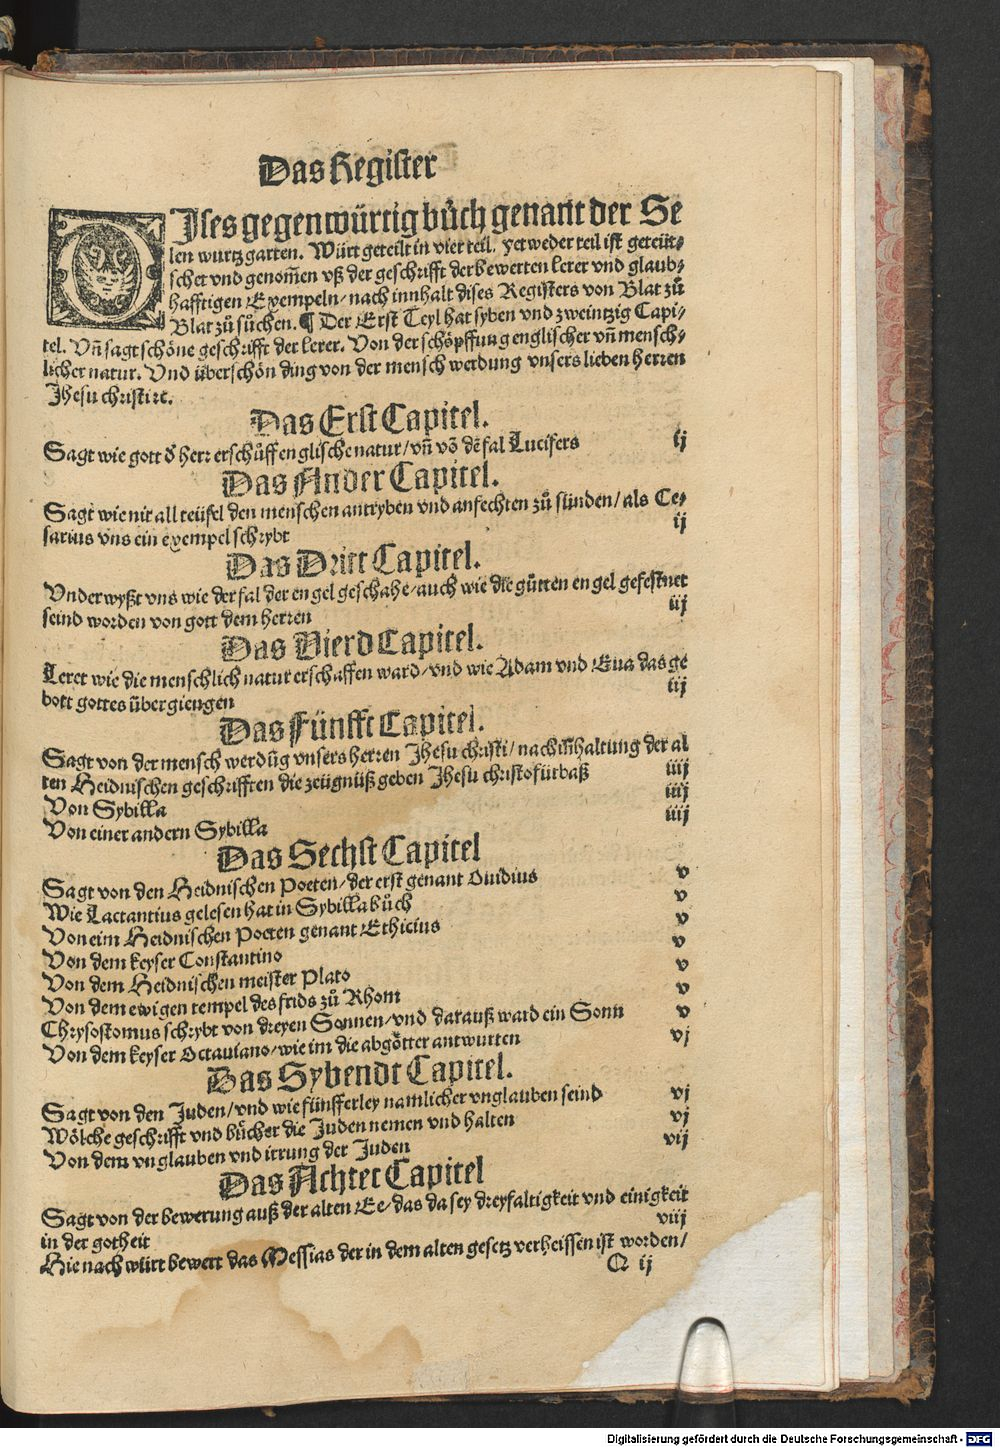 Das Register
DJses gegenwürtig bůch genant der Se
len wurtzgarten. Würt geteilt in vier teil. yetweder teil ist geteüt⸗
schet vnd genom̄en vß der geschrifft der bewerten lerer vnd glaub⸗
hafftigen Exempeln / nach innhalt dises Registers von Blat zů
Blat zů sůchen. ¶ Der Erst Teyl hat syben vnd zweintzig Capi⸗
tel. Vn̄ sagt schöne geschrifft der lerer. Von der schöpffung englischer vn̄ mensch⸗
licher natur. Vnd überschön ding von der mensch werdung vnsers lieben herren
Jhesu christi ꝛc.
Das Erst Capitel.
Sagt wie gott d' herr erschůff englische natur / vn̄ vō dē fal Lucifers ij
Das Ander Capitel.
Sagt wie nit all teüfel den menschen antryben vnd anfechten zů sünden / als Ce⸗
sarius vns ein exempel schrybt ij
Das Dritt Capitel.
Vnderwyßt vns wie der fal der engel geschahe / auch wie die gůtten engel gefestnet
seind worden von gott dem herren iij
Das Vierd Capitel.
Leret wie die menschlich natur erschaffen ward / vnd wie Adam vnd Eua das ge
bott gottes übergiengen iij
Das Fünfft Capitel.
Sagt von der mensch werdūg vnsers herren Jhesu christi / nach in̄haltung der al
ten Heidnischen geschrifften die zeügnüß geben Jhesu christo fürbaß iiij
Von Sybilla iiij
Von einer andern Sybilla iiij
Das Sechst Capitel
Sagt von den Heidnischen Poeten / der erst genant Ouidius v
Wie Lactantius gelesen hat in Sybilla bůch v
Von eim Heidnischen Poeten genant Ethicius v
Von dem keyser Constantino v
Von dem Heidnischen meister Plato v
Von dem ewigen tempel des frids zů Rhom v
Chrysostomus schrybt von dreyen Sonnen / vnd darauß ward ein Sonn v
Von dem keyser Octauiano / wie im die abgötter antwurten vj
Das Sybendt Capitel.
Sagt von den Juden / vnd wie fünfferley namlicher vnglauben seind vj
Wölche geschrifft vnd bücher die Juden nemen vnd halten vj
Von dem vnglauben vnd irrung der Juden vij
Das Achtet Capitel
Sagt von der bewerung auß der alten Ee / das da sey dreyfaltigkeit vnd einigkeit
in der gotheit viij
Hie nach würt bewert das Messias der in dem alten gesetz verheissen ist worden /
ij
Digitalisierung gefördert durch die Deutsche Forschungsgemeinschaft - DFG